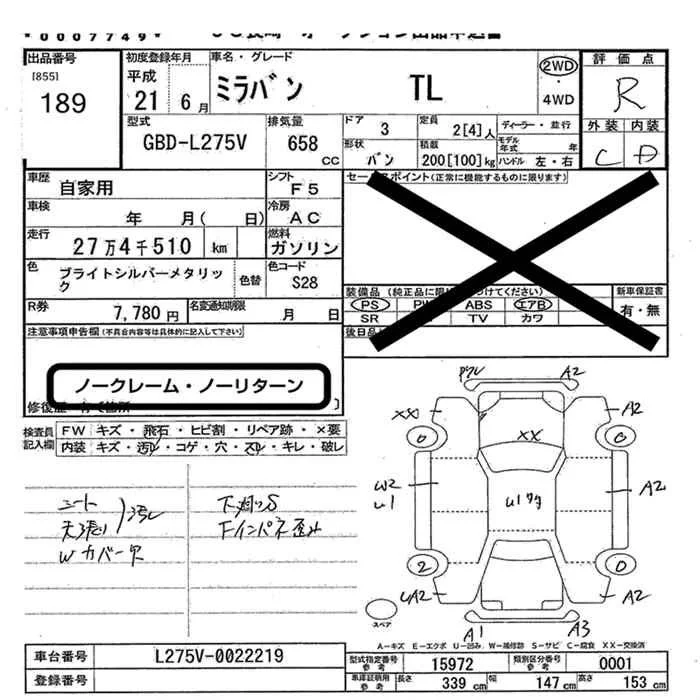 *0007749*
出品番号
[855]
189
初度登録年月
平成
21 6月
車名・グレード
ミラバン TL
2WD
・
4WD
評価点
R
型式
GBD-L275V
排気量
658
CC
ドア
3
定員
2[4]人
ディーラー・並行
モデル年式 年
形状
バン
積載
200[100]kg
ハンドル 左・右
外装 内装
C D
車歴
自家用
シフト
F5
車検
年 月( 日)
冷房
AC
走行
27万4千510 km
燃料
ガソリン
色
ブライトシルバーメタリック
色替
色コード
S28
R券
7,780円
名変通知期限
月 日
セールスポイント(正常に機能するものに限ります)
新車保証書
有・無
PS PW ABS エアB
SR TV カワ
注意事項申告欄(不具合内容等は具体的に記入して下さい)
ノークレーム・ノーリターン
検査員
記入欄
FW キズ・飛石・ヒビ割・リペア跡・×要
内装 キズ・汚れ・コゲ・穴・スレ・キレ・破レ
シート
天張り
汚レ
Wカバー欠
下廻りS
Fインパネ歪み
A2
XX
A2
XX
W2
U1
A2
2
A2
A1
A3
スペア
A-キズ E-エクボ U-凹み W-補修跡 S-サビ C-腐食 XX-交換済
車台番号
L275V-0022219
登録番号
型式指定番号
参考
15972
類別区分番号
参考
0001
車庫証明用
参考
長さ
339 cm
幅
147 cm
高さ
153 cm